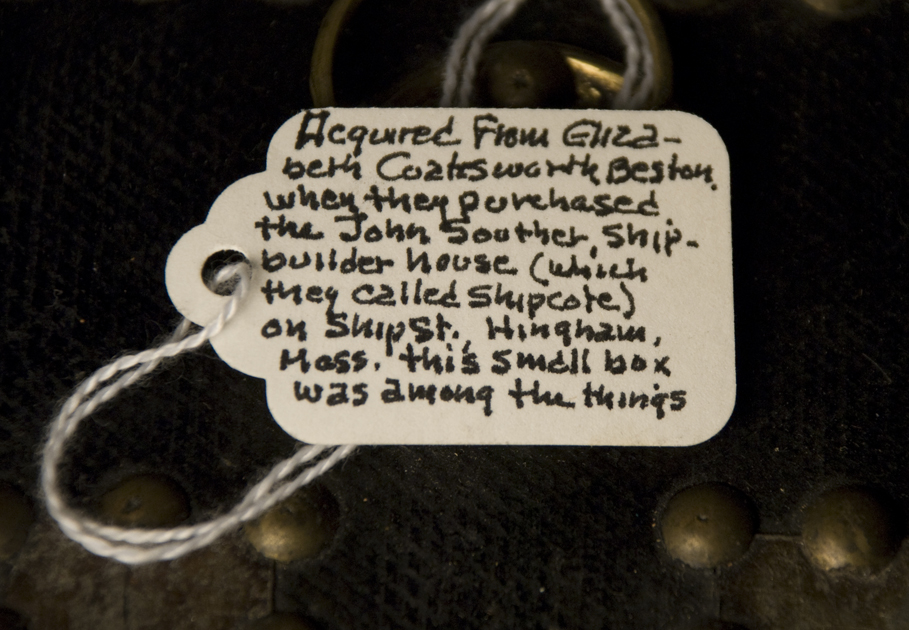 Acquired From Eliza-
beth Coatsworth Beston.
when they purchased
the John Souther, Ship-
builder house (which
they called Shipcote)
on Ship St., Hingham,
Mass. this small box
was among the things